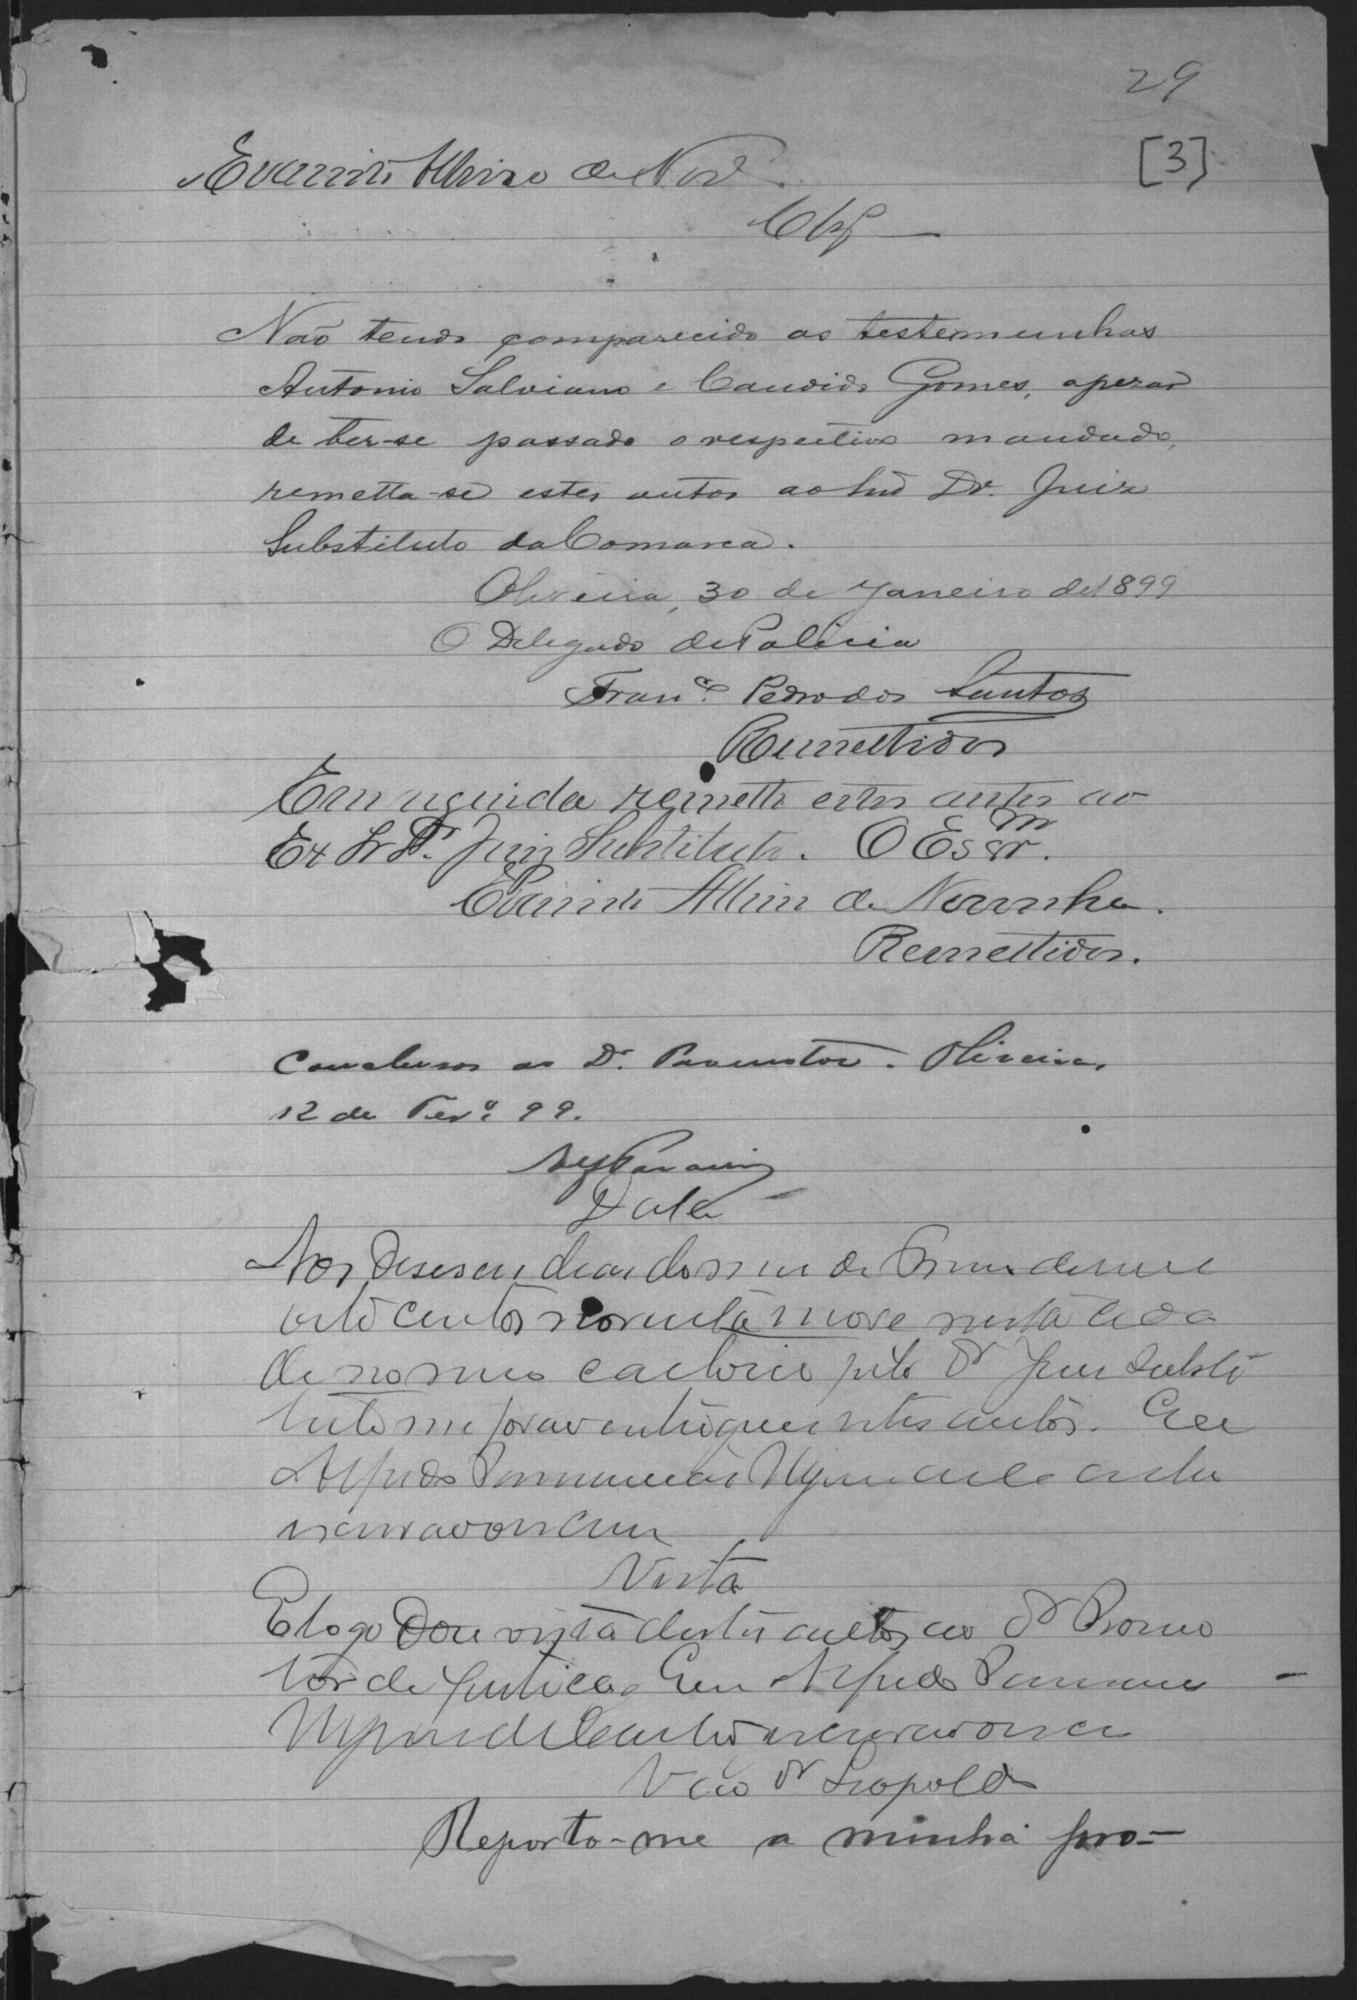 29
[3]
de
Não tendo comparecido as testemunhas
Antonio Salviano e Candido Gomes, apezar
de ter-se passado o respectivo mandado,
remetta-se estes autos ao Dr. Juiz
Substituto da Comarca.
Oliveira, 30 de Janeiro de 1899
O Delegado de Policia
Franco. Pedro dos Santos
Remettidos
Em seguida remetto estes autos ao
Ex Sr Dr. Juiz Substituto. O Escrm.
de Noronha.
Remettidos.
Conclusos ao Dr. Promotor. Oliveira,
12 de Fevo. 99.
Data
de
oito centos noventa nove nesta cida
de no meu cartorio pelo Dr Juiz Substi
tuto me foram entregues estes autos. Eu
Alfredo
Vista
E logo Dou vista destes autos ao Dr Promo
tor de Justiça. Eu Alfredo
V ao Dr Leopoldo
Reporto-me a minha pro-